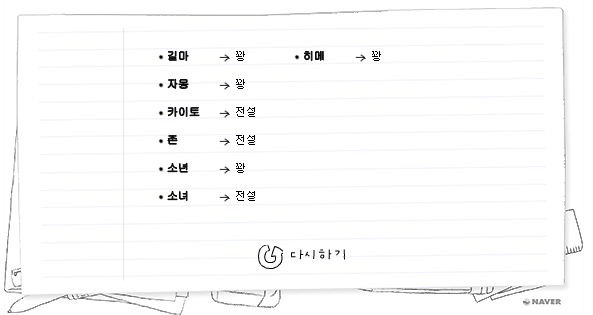 길마 → 꽝 히메 → 꽝
자몽 → 꽝
카이토 → 전설
존 → 전설
소년 → 꽝
소녀 → 전설
다시하기
NAVER